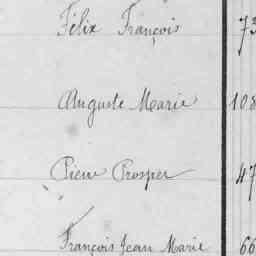 Félix François 73
Auguste Marie 108
Pierre Prosper 47
François Jean Marie 66